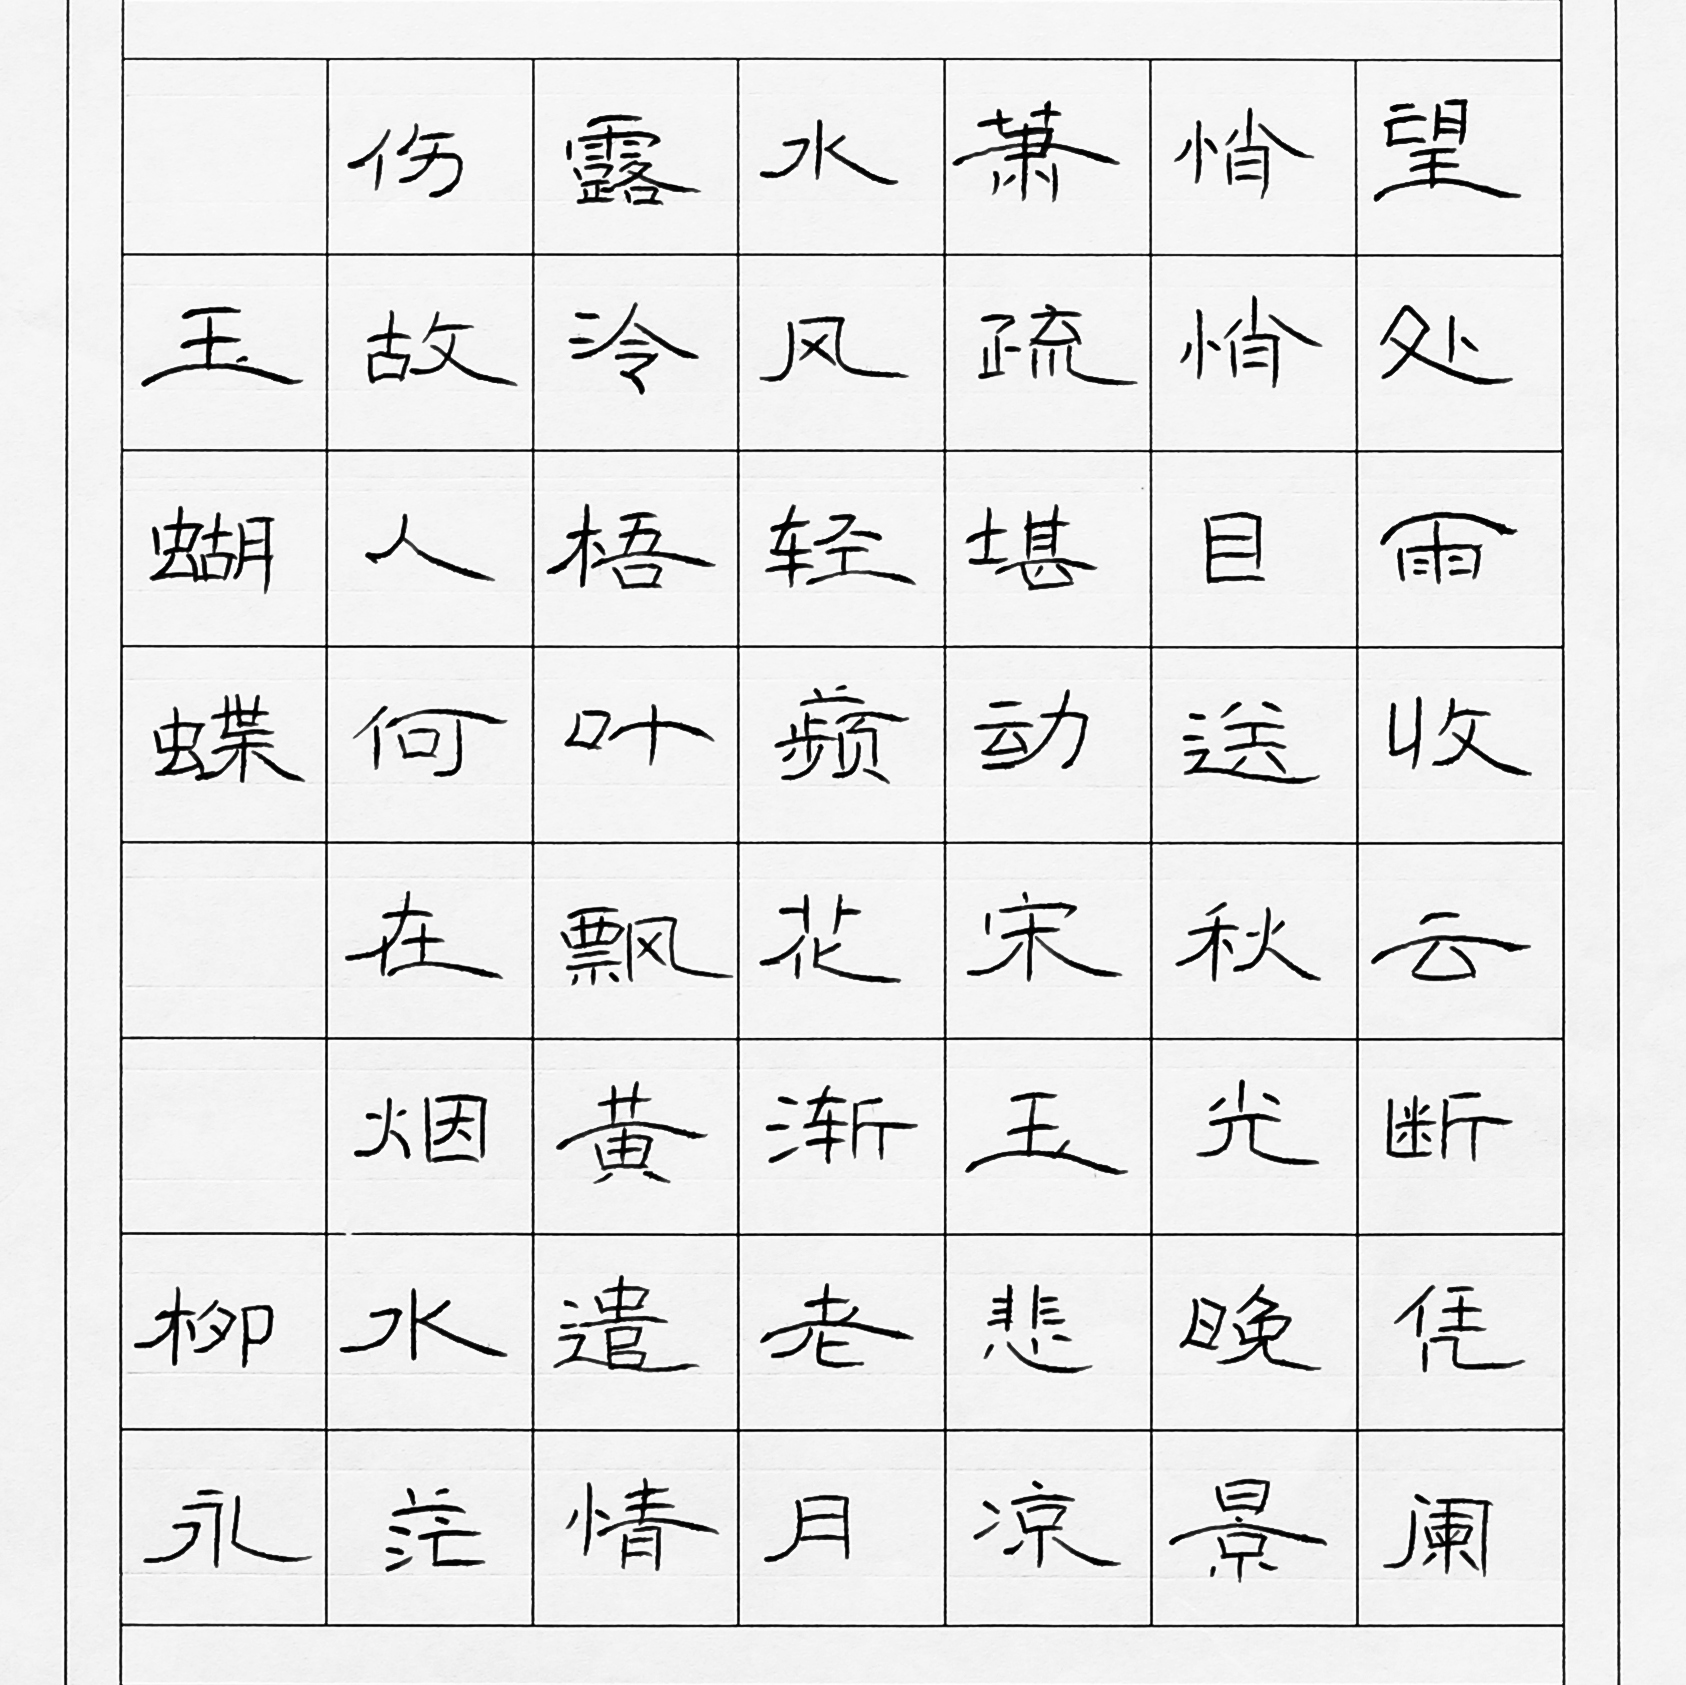 望处雨收云断凭阑
悄悄目送秋光晚景
萧疏堪动宋玉悲凉
水风轻蘋花渐老月
露泠梧叶飘黄遣情
伤故人何在烟水茫
玉蝴蝶柳永